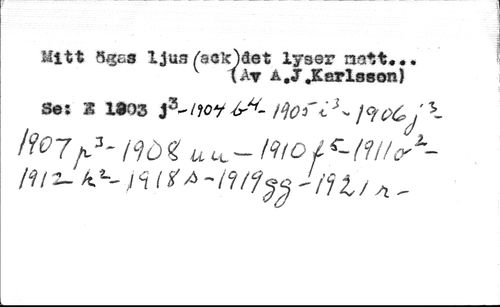 Mitt ögas ljus (ack) det lyser matt...
(Av A.J.Karlsson)
Se: E 1903 j³-1904 b⁴-1905 i³-1906 j³-
1907 p³-1908 uu-1910 f⁵-1911 o²-
1912 k²-1918 s-1919 gg-1921 r-